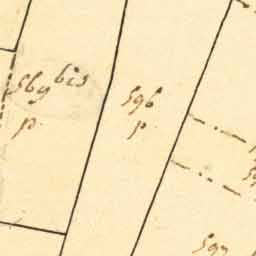 569 bis
p.
596
p.
597